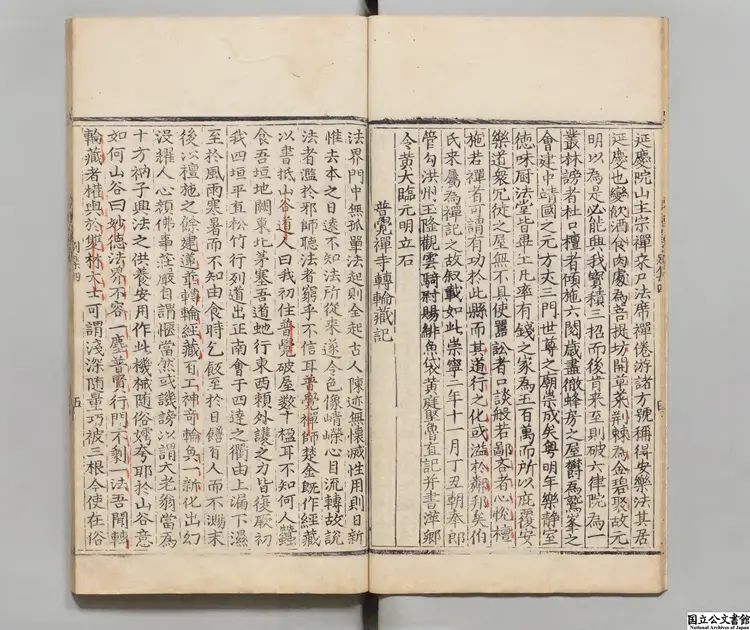 延慶院山主宗禪來尸法席禪倦游諸方號稱得安樂法其居
延慶也變飲酒食肉處為菩提坊開草萊荆棘為金碧聚故元
明以為是必能興我寶積三招而後肯來至則破六律院為一
叢林謗者杜口檀者傾施六閱歲盡徹蜂房之屋欝為鷲峯之
會建中靖國之元方丈三門世尊之廟崇成矣粤明年樂静室
徳味厨法堂皆畢工凡率有錢之家為五百萬而所以庇覆安
樂道衆冗徙之屋無不具使嚚訟者口談般若鄙吝者心悦檀
施若禪者可謂有功於此縣而其道行之化或溢於鄰邦矣伯
氏來屬為禪記之故叙載如此崇寧二年十一月丁丑朝奉郎
管勾洪州玉隆觀雲騎尉賜緋魚袋黄庭堅魯直記并書萍鄉
令黄大臨元明立石
普覺禪寺轉輪藏記
法界門中無孤單法起則全起古人陳迹無懷滅性用則日新
惟去本之日遠不知法所從來遂令色像崢嶸心目流轉故説
法者濫於邪師聽法者窮乎不信耳普覺禪師楚金既作經藏
以書抵山谷道人曰我初住普覺破屋數十楹耳不知何人蠶
食吾垣地闕東北茅塞吾道虵行東西頼外護之力皆復厥初
我四垣平直松竹行列道出正南會于四達之衢由上漏下濕
至於風雨寒暑而不知由食時乞飯至於日饍百人而不溷末
後以檀施之餘建蓮華轉輪經藏百工神奇輪奐一新化出幻
沒耀人心顔佛事莊嚴自謂愜當然或譏謗以謂大老翁當為
十方衲子興法之供養安用作此機械随俗嫮夸耶於山谷意
如何山谷曰妙德法界不容一塵普賢行門不剩一法吾聞轉
輪藏者權輿於雙林大士可謂淺深随量巧被三根令使在俗
別集四
五
国立公文書館
National Archives of Japan